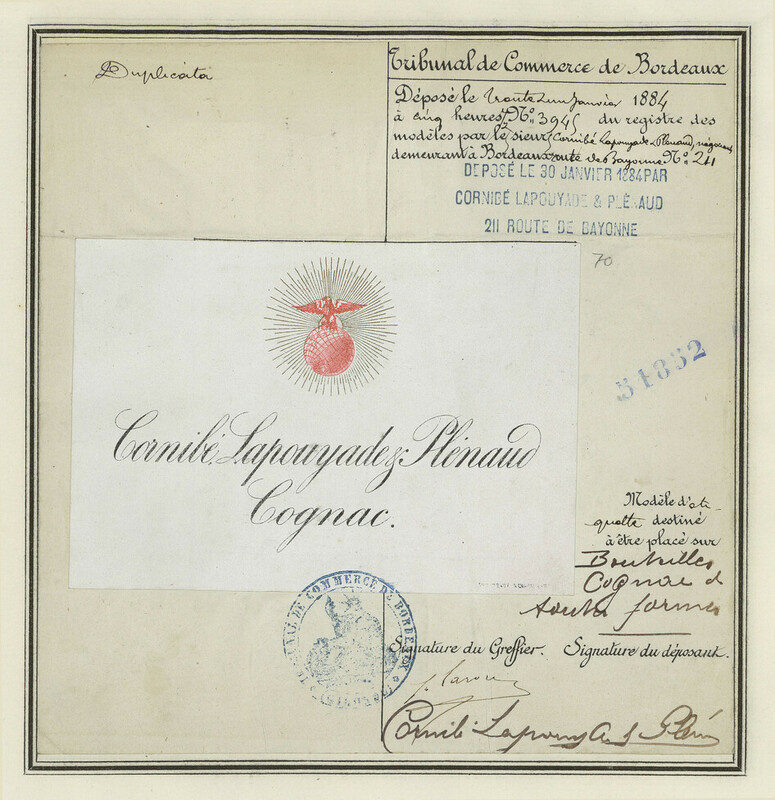 Duplicata
Tribunal de Commerce de Bordeaux
Déposé le trente un Janvier 1884
à cinq heures ½ N° 3945 du registre des
modèles par le sieur Cornibé Lapouyade & Plénaud, négociants
demeurant à Bordeaux route de Bayonne N° 211
DEPOSÉ LE 30 JANVIER 1884 PAR
CORNIBÉ LAPOUYADE & PLÉNAUD
211 ROUTE DE BAYONNE
70
51832
Cornibé, Lapouyade & Plénaud
Cognac.
Modèle d'éti-
quette destiné
à être placé sur
Bouteilles
Cognac de
toutes formes
TRIBUNAL DE COMMERCE DE BORDEAUX
Signature du Greffier. Signature du déposant.
Cornibé Lapouyade & Plénaud